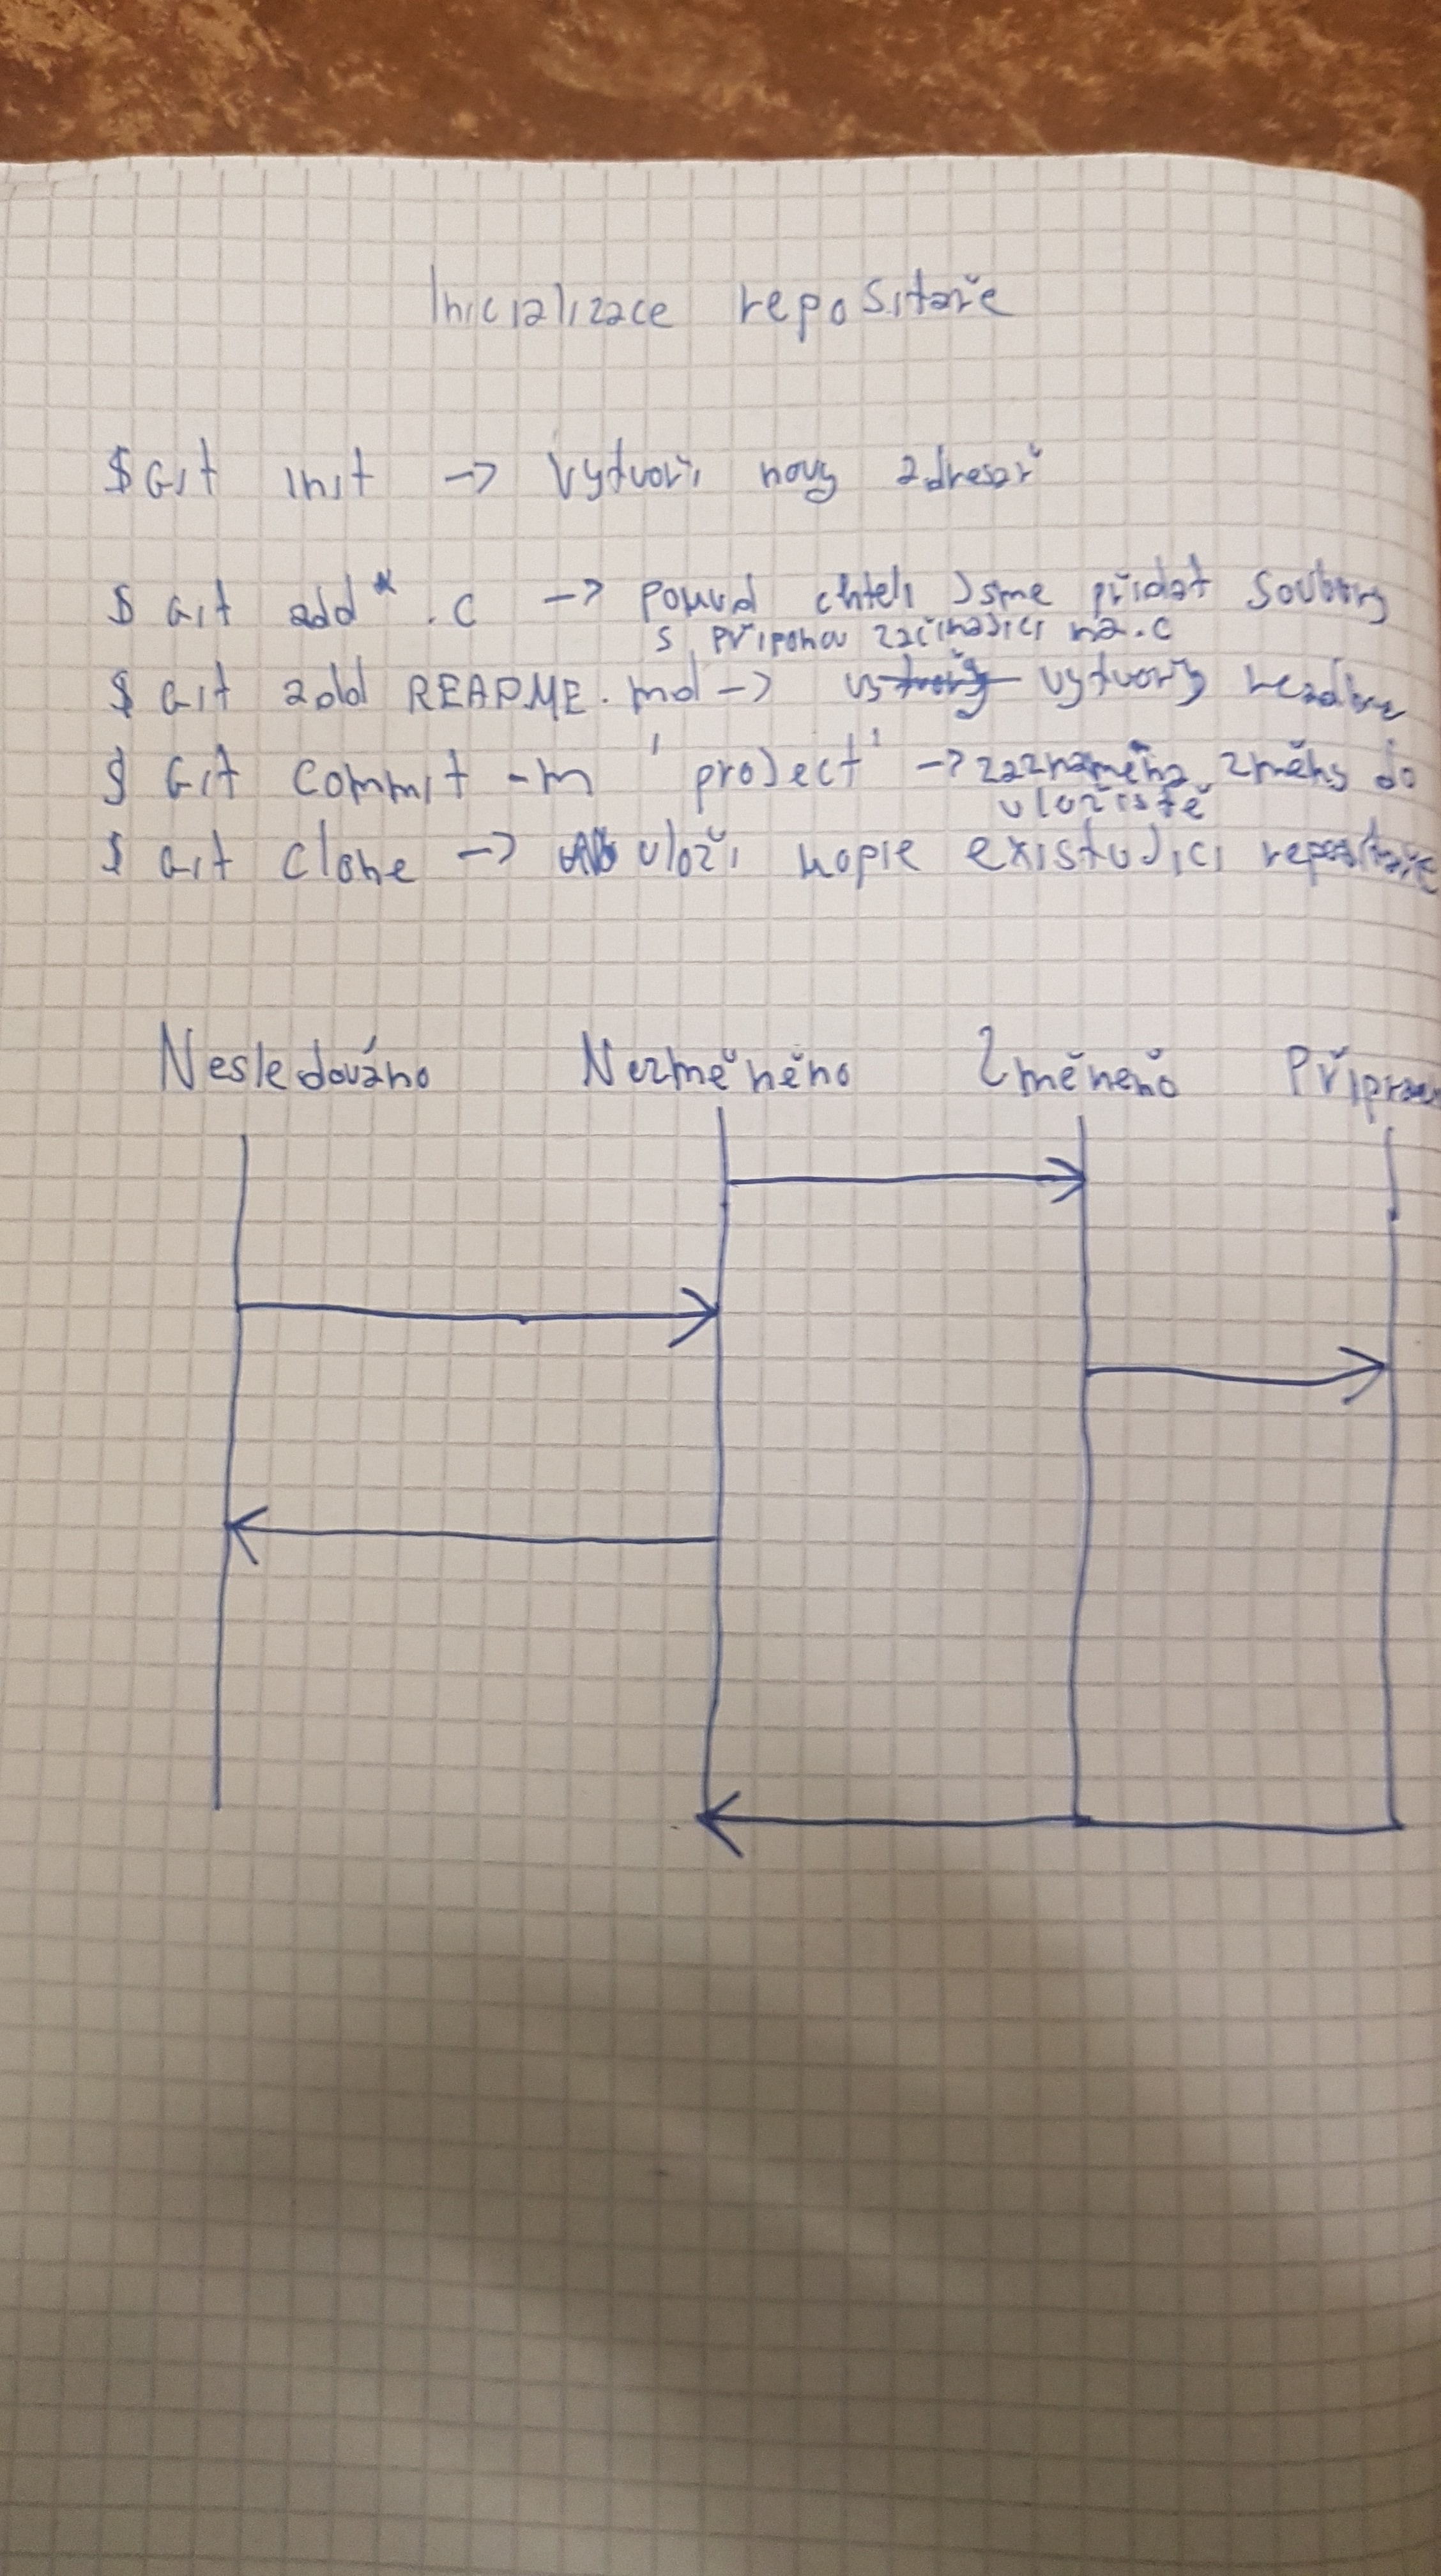 Inicializace repositaře
$ Git init -> Vytvoři novy adresař
$ Git add *.c -> pokud chteli Jsme přidat Soubory
s připonou začinaJici na.c
$ Git add README.md -> vytvořy readme
$ Git commit -m 'proJect' -> zaznamena změny do
uložiště
$ Git Clone -> uloži kopie existuJici repositaře
Nesledováno Nezměněno Změneno